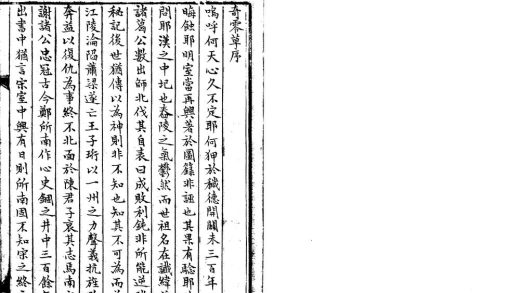 奇零草序
嗚呼何天心久不定耶何狎於穢德開闢未三百年
晦蝕耶明室當再興著於圖籙非誣也其果有驗耶
問耶漢之中圮也舂陵之氣鬱然而世祖名在讖緯
諸葛公數出師北伐其自表曰成敗利鈍非所能逆
秘記後世猶傳以為神則非不知也知其不可為而
江陵淪陷蕭梁遂亡王子珩以一州之力聲義抗旌
奔益以復仇為事終不北面於陳君子哀其志焉南
謝諸公忠冠古今鄭所南作心史錮之井中三百餘
出書中猶言宗室中興有日則所南固不知宋之終